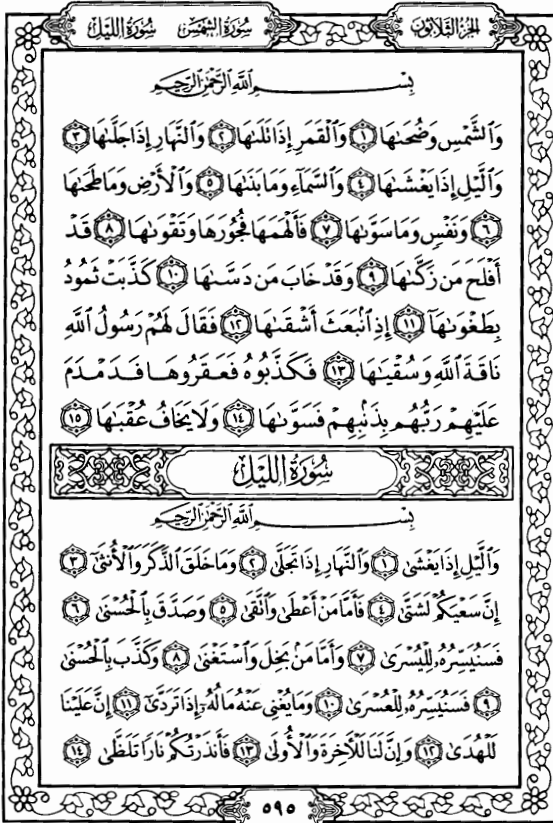 سُورَةُ الشَّمْسِ سُورَةُ اللَّيْلِ
الجُزْءُ الثَّلَاثُونَ
بِسْمِ اللَّهِ الرَّحْمَٰنِ الرَّحِيمِ
وَالشَّمْسِ وَضُحَىٰهَا ١ وَالْقَمَرِ إِذَا تَلَىٰهَا ٢ وَالنَّهَارِ إِذَا جَلَّىٰهَا ٣
وَالَّيْلِ إِذَا يَغْشَىٰهَا ٤ وَالسَّمَآءِ وَمَا بَنَىٰهَا ٥ وَالْأَرْضِ وَمَا طَحَىٰهَا
٦ وَنَفْسٍ وَمَا سَوَّىٰهَا ٧ فَأَلْهَمَهَا فُجُورَهَا وَتَقْوَىٰهَا ٨ قَدْ
أَفْلَحَ مَن زَكَّىٰهَا ٩ وَقَدْ خَابَ مَن دَسَّىٰهَا ١٠ كَذَّبَتْ ثَمُودُ
بِطَغْوَىٰهَآ ١١ إِذِ انۢبَعَثَ أَشْقَىٰهَا ١٢ فَقَالَ لَهُمْ رَسُولُ اللَّهِ
نَاقَةَ اللَّهِ وَسُقْيَٰهَا ١٣ فَكَذَّبُوهُ فَعَقَرُوهَا فَدَمْدَمَ
عَلَيْهِمْ رَبُّهُم بِذَنۢبِهِمْ فَسَوَّىٰهَا ١٤ وَلَا يَخَافُ عُقْبَٰهَا ١٥
سُورَةُ اللَّيْلِ
بِسْمِ اللَّهِ الرَّحْمَٰنِ الرَّحِيمِ
وَالَّيْلِ إِذَا يَغْشَىٰ ١ وَالنَّهَارِ إِذَا تَجَلَّىٰ ٢ وَمَا خَلَقَ الذَّكَرَ وَالْأُنثَىٰٓ ٣
إِنَّ سَعْيَكُمْ لَشَتَّىٰ ٤ فَأَمَّا مَنْ أَعْطَىٰ وَاتَّقَىٰ ٥ وَصَدَّقَ بِالْحُسْنَىٰ ٦
فَسَنُيَسِّرُهُۥ لِلْيُسْرَىٰ ٧ وَأَمَّا مَنۢ بَخِلَ وَاسْتَغْنَىٰ ٨ وَكَذَّبَ بِالْحُسْنَىٰ
٩ فَسَنُيَسِّرُهُۥ لِلْعُسْرَىٰ ١٠ وَمَا يُغْنِي عَنْهُ مَالُهُۥٓ إِذَا تَرَدَّىٰٓ ١١ إِنَّ عَلَيْنَا
لَلْهُدَىٰ ١٢ وَإِنَّ لَنَا لَلْآخِرَةَ وَالْأُولَىٰ ١٣ فَأَنذَرْتُكُمْ نَارًا تَلَظَّىٰ ١٤
٥٩٥